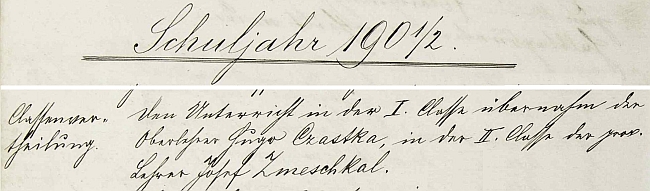 Schuljahr 1901/2.
Classenver-
theilung.
Den Unterricht in der I. Classe übernahm der
Oberlehrer Hugo Czastka, in der II. Classe der prov.
Lehrer Josef Zmeschkal.